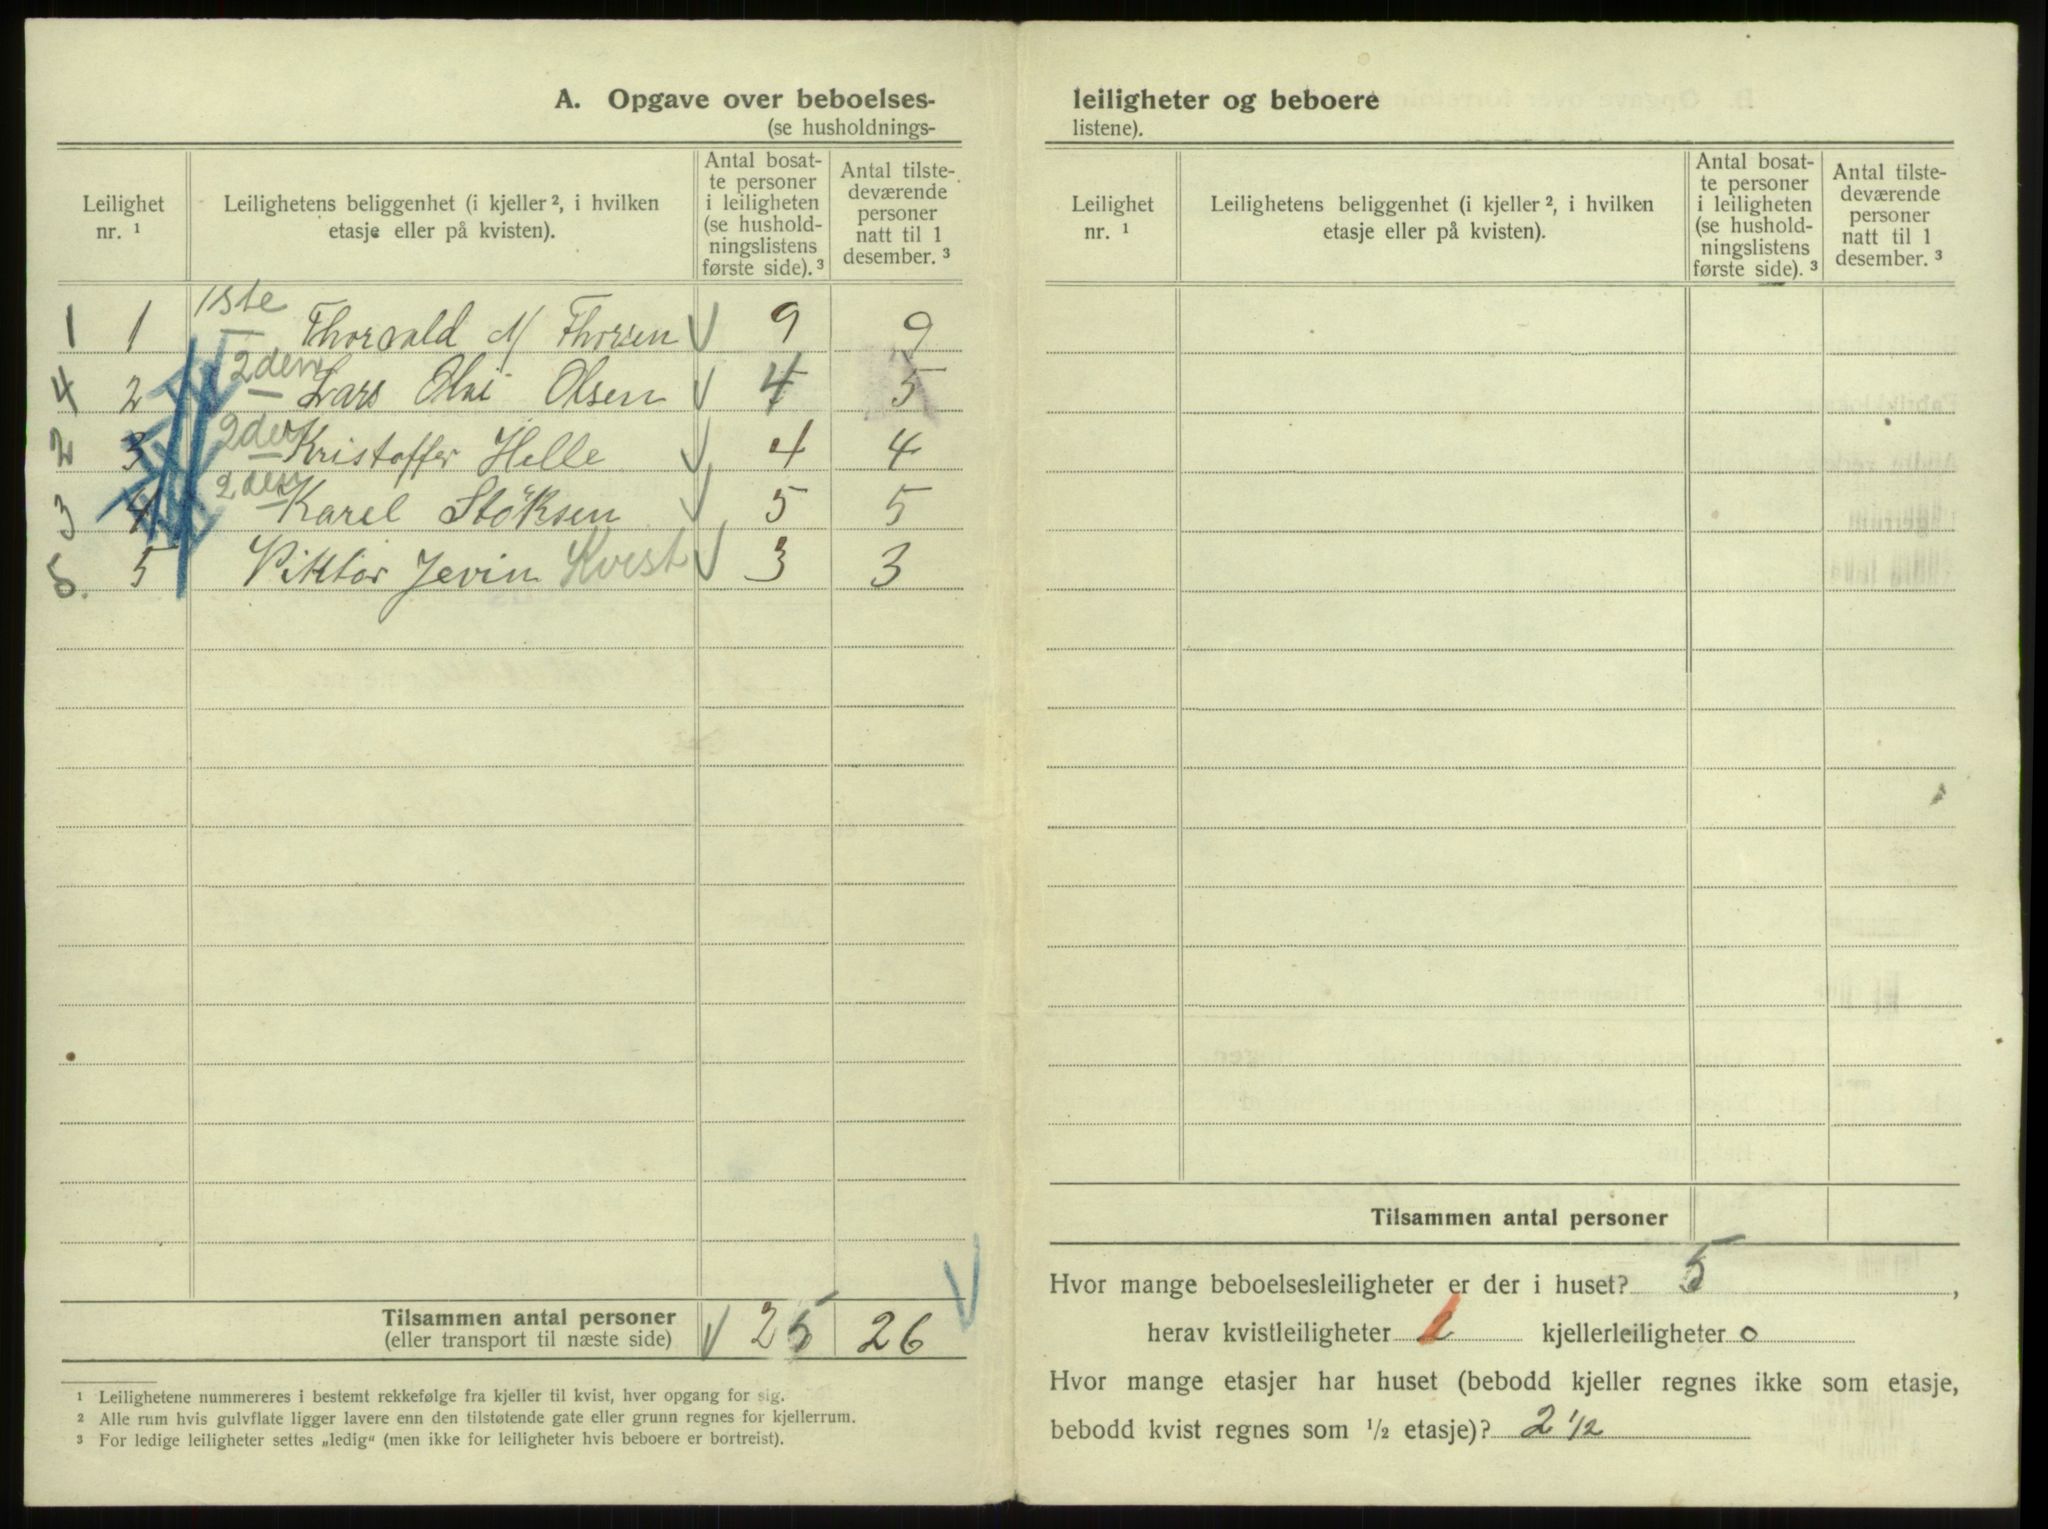 A. Opgave over beboelses-
(se husholdnings-
Leilighet nr. 1
Leilighetens beliggenhet (i kjeller 2, i hvilken etasje eller på kvisten).
Antal bosatte personer i leiligheten (se husholdningslistens første side). 3
Antal tilstedeværende personer natt til 1 desember. 3
1 1 1ste Thorvald M Thorsen 9 9
4 2 2den Lars Olai Olsen 4 5
2 3 2den Kristoffer Helle 4 4
3 4 2den Karel Stöksen 5 5
5. 5 Viktor Jevin Kvist 3 3
Tilsammen antal personer 25 26
(eller transport til næste side)
1 Leilighetene nummereres i bestemt rekkefølge fra kjeller til kvist, hver opgang for sig.
2 Alle rum hvis gulvflate ligger lavere enn den tilstøtende gate eller grunn regnes for kjellerrum.
3 For ledige leiligheter settes „ledig" (men ikke for leiligheter hvis beboere er bortreist).
leiligheter og beboere
listene).
Leilighet nr. 1
Leilighetens beliggenhet (i kjeller 2, i hvilken etasje eller på kvisten).
Antal bosatte personer i leiligheten (se husholdningslistens første side). 3
Antal tilstedeværende personer natt til 1 desember. 3
Tilsammen antal personer
Hvor mange beboelsesleiligheter er der i huset? 5,
herav kvistleiligheter 1 kjellerleiligheter 0
Hvor mange etasjer har huset (bebodd kjeller regnes ikke som etasje,
bebodd kvist regnes som 1/2 etasje)? 2 1/2